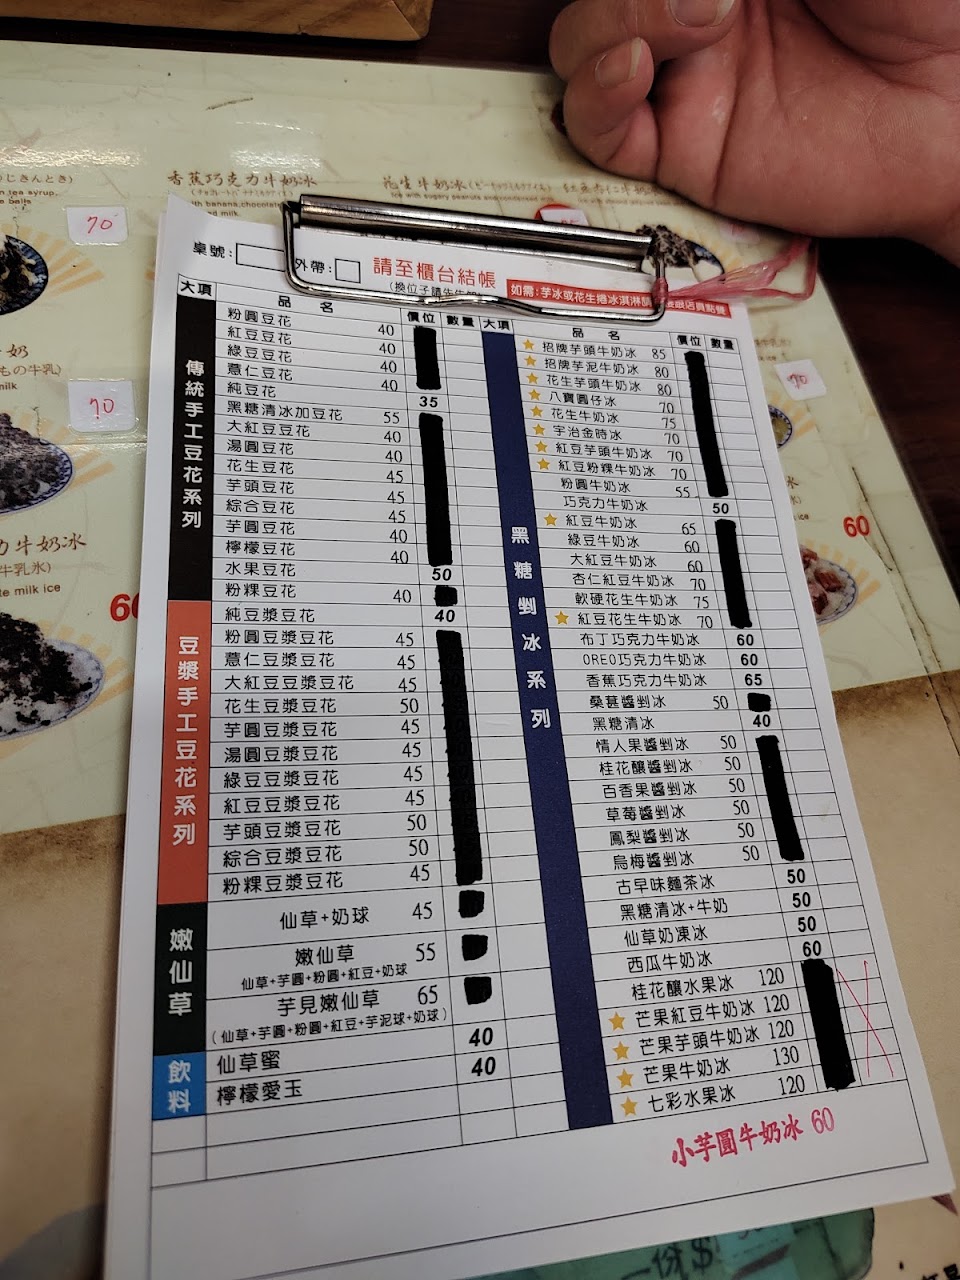 香蕉巧克力牛奶冰
花生牛奶冰
70
70
70
牛奶冰
te milk ice
60
桌號:
外帶:
請至櫃台結帳
大項
品名
價位
數量
傳統手工豆花系列
粉圓豆花 40
紅豆豆花 40
綠豆豆花 40
薏仁豆花 40
純豆花 35
黑糖清冰加豆花 55
大紅豆豆花 40
湯圓豆花 40
花生豆花 45
芋頭豆花 45
綜合豆花 45
芋圓豆花 40
檸檬豆花 40
水果豆花 50
粉粿豆花 40
豆漿手工豆花系列
純豆漿豆花 40
粉圓豆漿豆花 45
薏仁豆漿豆花 45
大紅豆豆漿豆花 45
花生豆漿豆花 50
芋圓豆漿豆花 45
湯圓豆漿豆花 45
綠豆豆漿豆花 45
紅豆豆漿豆花 45
芋頭豆漿豆花 50
綜合豆漿豆花 50
粉粿豆漿豆花 45
嫩仙草
仙草+奶球 45
嫩仙草 55
仙草+芋圓+粉圓+紅豆+奶球
芋見嫩仙草 65
(仙草+芋圓+粉圓+紅豆+芋泥球+奶球)
飲料
仙草蜜 40
檸檬愛玉 40
大項
品名
價位
數量
黑糖剉冰系列
招牌芋頭牛奶冰 85
招牌芋泥牛奶冰 80
花生芋頭牛奶冰 80
八寶圓仔冰 70
花生牛奶冰 75
宇治金時冰 70
紅豆芋頭牛奶冰 70
紅豆粉粿牛奶冰 70
粉圓牛奶冰 55
巧克力牛奶冰 50
紅豆牛奶冰 65
綠豆牛奶冰 60
大紅豆牛奶冰 60
杏仁紅豆牛奶冰 70
軟硬花生牛奶冰 75
紅豆花生牛奶冰 70
布丁巧克力牛奶冰 60
OREO巧克力牛奶冰 60
香蕉巧克力牛奶冰 65
桑葚醬剉冰 50
黑糖清冰 40
情人果醬剉冰 50
桂花釀醬剉冰 50
百香果醬剉冰 50
草莓醬剉冰 50
鳳梨醬剉冰 50
烏梅醬剉冰 50
古早味麵茶冰 50
黑糖清冰+牛奶 50
仙草奶凍冰 50
西瓜牛奶冰 60
桂花釀水果冰 120
芒果紅豆牛奶冰 120
芒果芋頭牛奶冰 120
芒果牛奶冰 130
七彩水果冰 120
小芋圓牛奶冰 60
60
一份$